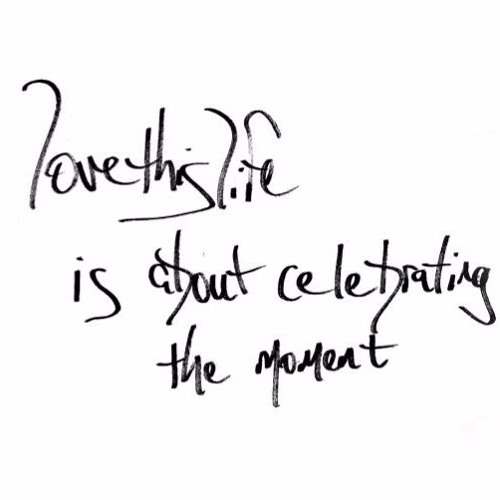 love this life
is about celebrating
the moment